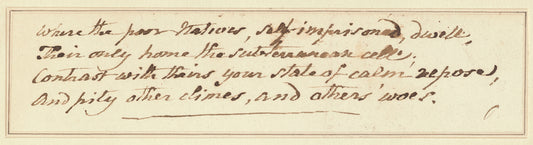 Where the poor Natives, self-imprisoned, dwell,
Their only home the subterranean cell,
Contrast with theirs your state of calm repose,
And pity other climes, and others' woes.